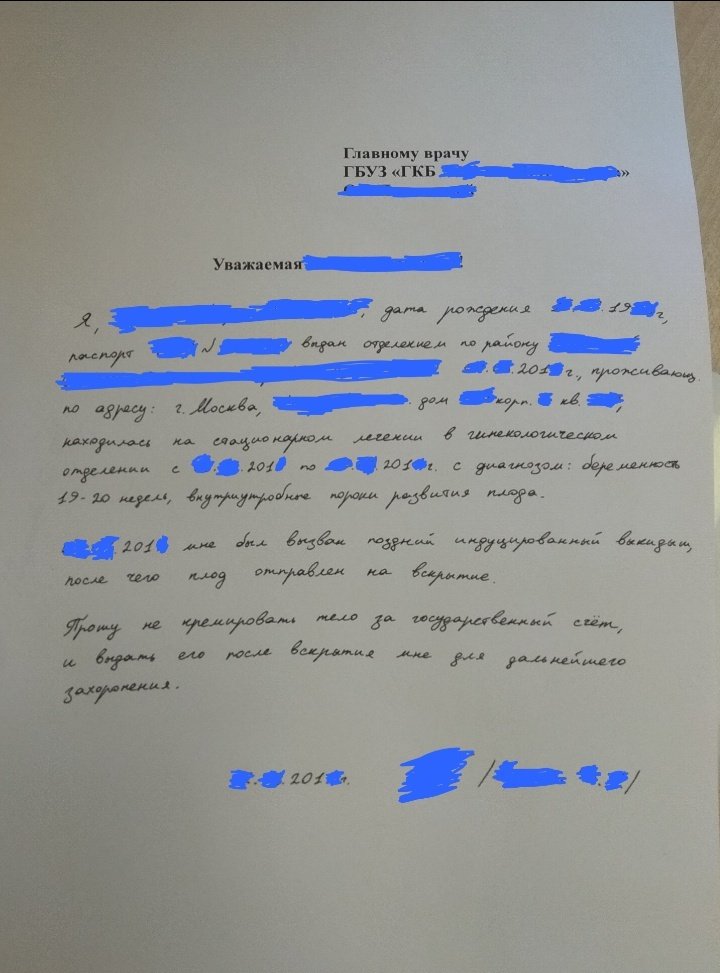 Главному врачу
ГБУЗ «ГКБ »
Уважаемая !
Я, , дата рождения . .19 г,
паспорт № выдан отделением по району
, . .201 г., проживающ.
по адресу: г. Москва, дом корп. кв. ,
находилась на стационарном лечении в гинекологическом
отделении с . .201 по . .201 г. с диагнозом: беременность
19-20 недель, внутриутробные пороки развития плода.
. .201 мне был вызван поздний индуцированный выкидыш,
после чего плод отправлен на вскрытие.
Прошу не кремировать тело за государственный счёт,
и выдать его после вскрытия мне для дальнейшего
захоронения.
. .201 г. / . ./